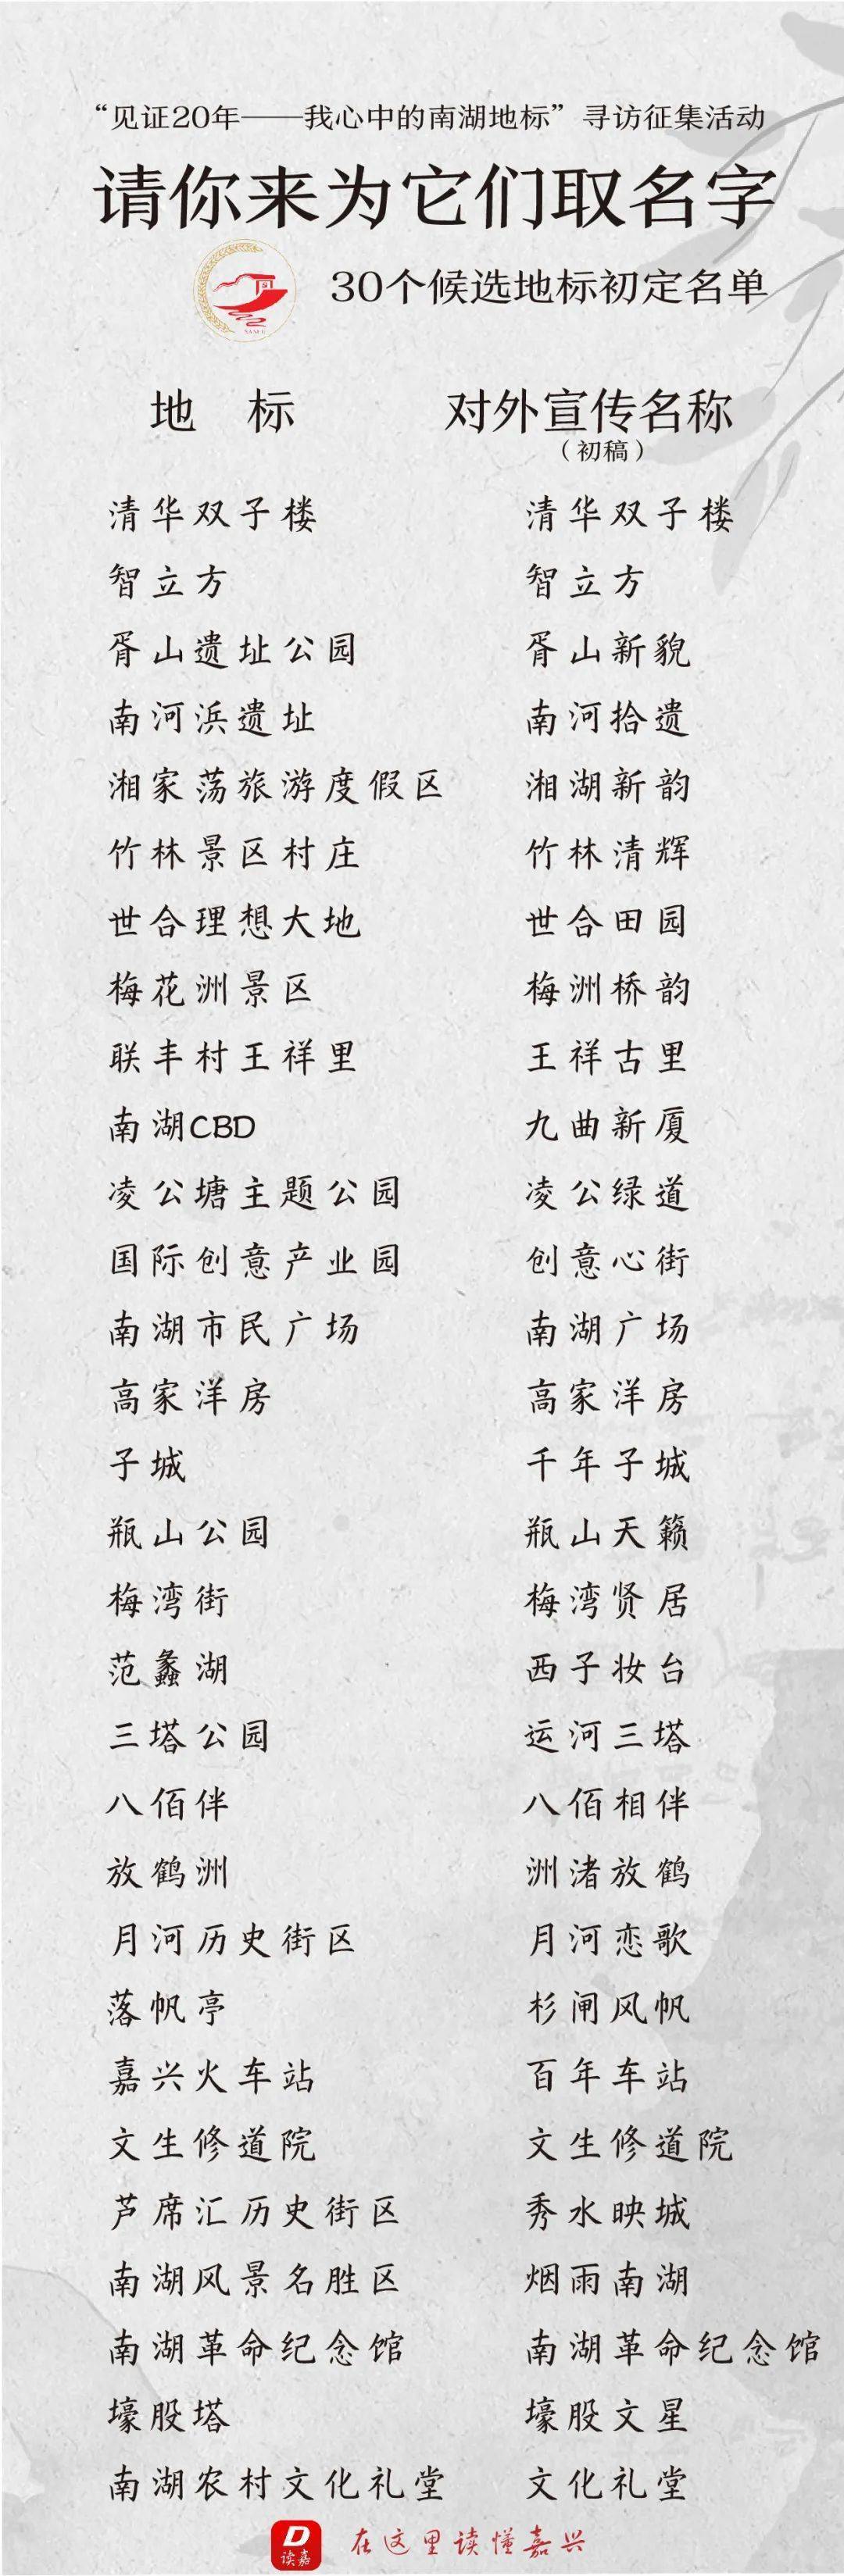 “见证20年——我心中的南湖地标”寻访征集活动
请你来为它们取名字
30个候选地标初定名单
地 标 对外宣传名称
（初稿）
清华双子楼 清华双子楼
智立方 智立方
胥山遗址公园 胥山新貌
南河浜遗址 南河拾遗
湘家荡旅游度假区 湘湖新韵
竹林景区村庄 竹林清辉
世合理想大地 世合田园
梅花洲景区 梅洲桥韵
联丰村王祥里 王祥古里
南湖CBD 九曲新厦
凌公塘主题公园 凌公绿道
国际创意产业园 创意心街
南湖市民广场 南湖广场
高家洋房 高家洋房
子城 千年子城
瓶山公园 瓶山天籁
梅湾街 梅湾贤居
范蠡湖 西子妆台
三塔公园 运河三塔
八佰伴 八佰相伴
放鹤洲 洲渚放鹤
月河历史街区 月河恋歌
落帆亭 杉闸风帆
嘉兴火车站 百年车站
文生修道院 文生修道院
芦席汇历史街区 秀水映城
南湖风景名胜区 烟雨南湖
南湖革命纪念馆 南湖革命纪念馆
壕股塔 壕股文星
南湖农村文化礼堂 文化礼堂
D 读嘉 在这里读懂嘉兴